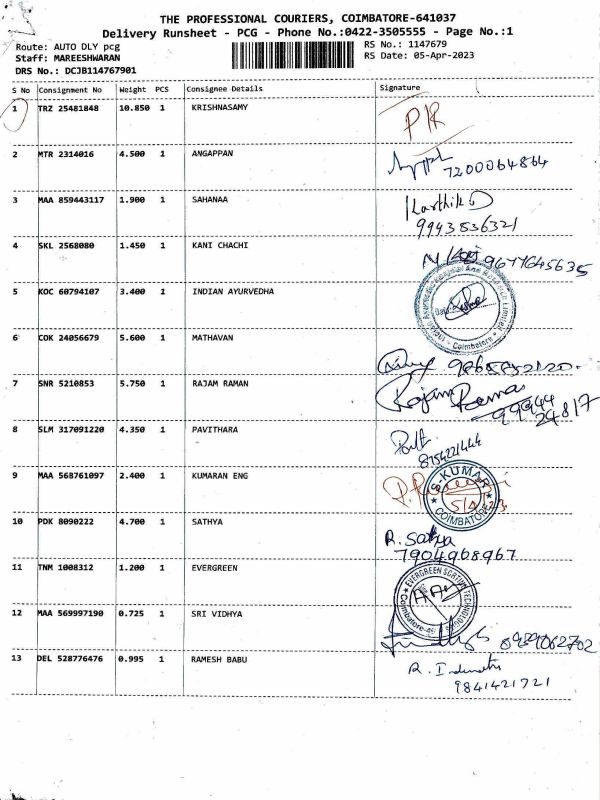 THE PROFESSIONAL COURIERS, COIMBATORE-641037
Delivery Runsheet - PCG - Phone No.:0422-3505555 - Page No.:1
Route: AUTO DLY pcg RS No.: 1147679
Staff: MAREESHWARAN RS Date: 05-Apr-2023
DRS No.: DCJB114767901
S No Consignment No Weight PCS Consignee Details Signature
1 TRZ 25481848 10.850 1 KRISHNASAMY
2 MTR 2314016 4.500 1 ANGAPPAN
7200064864
3 MAA 859443117 1.900 1 SAHANAA Karthik D
9943836321
4 SKL 2568080 1.450 1 KANI CHACHI
9677645635
5 KOC 60794107 3.400 1 INDIAN AYURVEDHA
Coimbatore
6 COK 24056679 5.600 1 MATHAVAN
7 SNR 5210853 5.750 1 RAJAM RAMAN Rajam Raman
99944
24817
8 SLM 317091220 4.350 1 PAVITHARA
8754221444
9 MAA 568761097 2.400 1 KUMARAN ENG
S-KUMAR
COIMBATORE
10 PDK 8090222 4.700 1 SATHYA R. Sathya
7904968967
11 TNM 1008312 1.200 1 EVERGREEN
EVERGREEN
12 MAA 569997190 0.725 1 SRI VIDHYA
8939062702
13 DEL 528776476 0.995 1 RAMESH BABU
9841421721